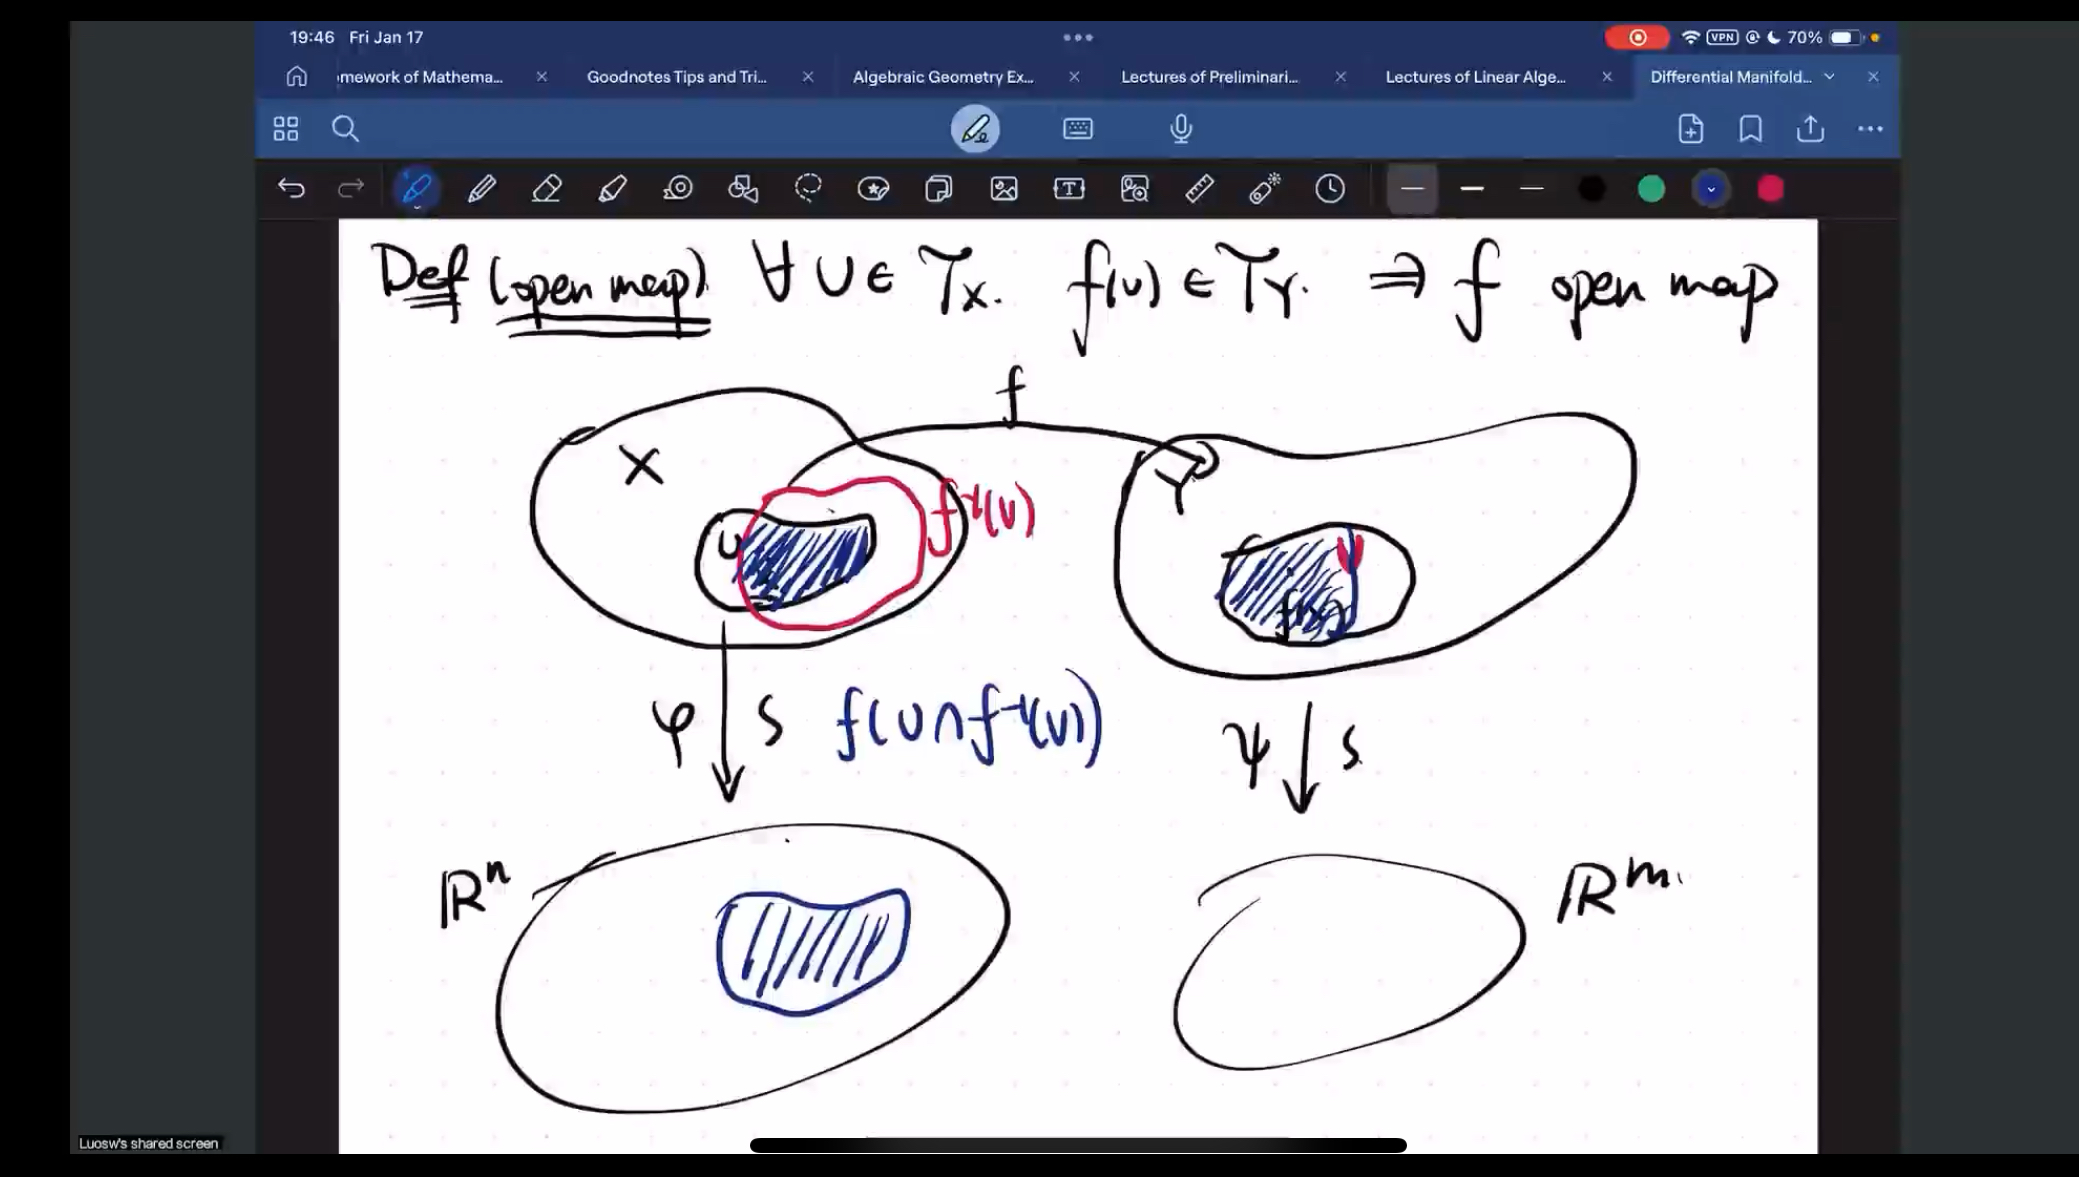 19:46 Fri Jan 17
VPN 70%
omework of Mathema... Goodnotes Tips and Tri... Algebraic Geometry Ex... Lectures of Preliminari... Lectures of Linear Alge... Differential Manifold...
Def (open map) ∀ U ∈ 𝒯_X. f(U) ∈ 𝒯_Y. ⇒ f open map
f
X
Y
U
f⁻¹(V)
V
φ
S
f(U∩f⁻¹(V))
ψ
S
ℝⁿ
ℝᵐ
Luosw's shared screen